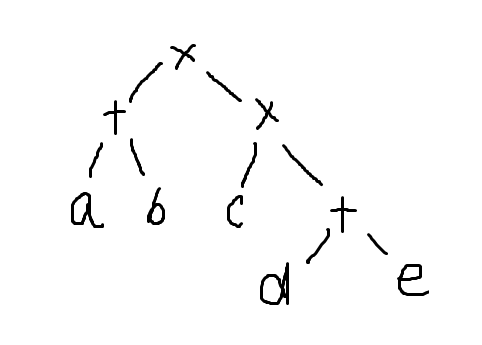 ×
+ ×
a b c +
d e